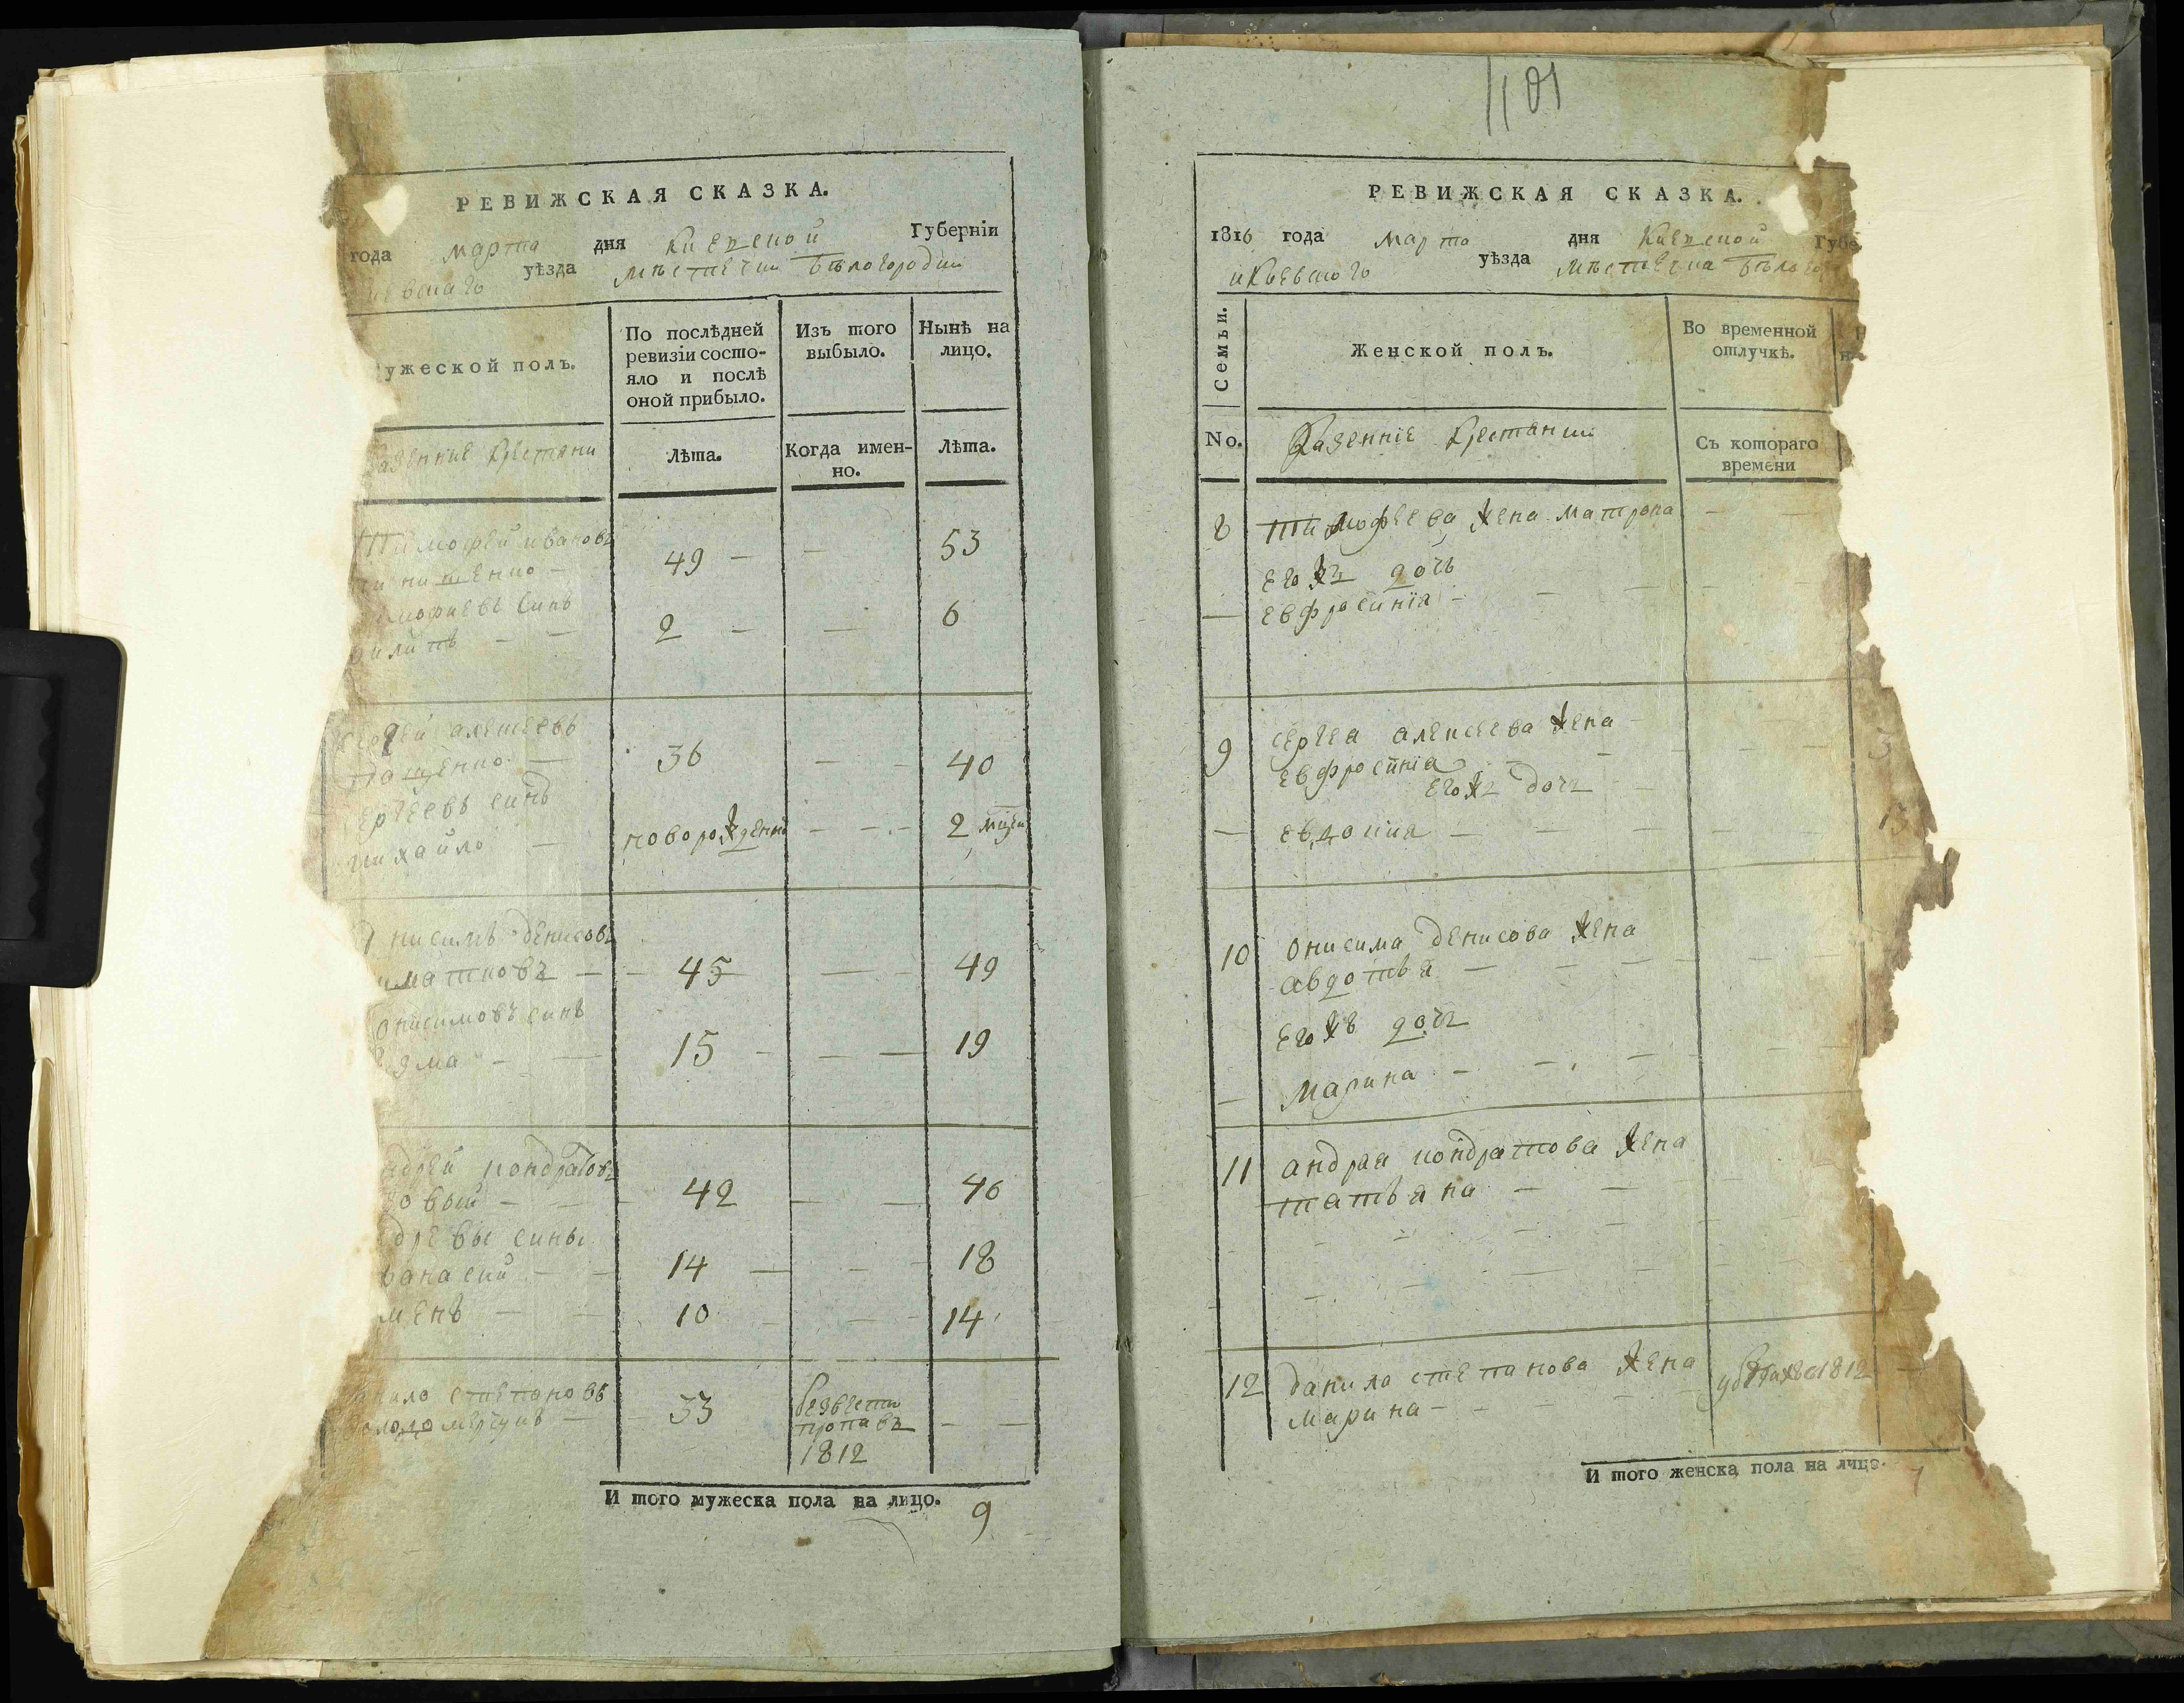 РЕВИЖСКАЯ СКАЗКА.
года марта дня Киевской Губерніи
уѣзда мѣстечки Бѣлогородки
Мужеской полъ.
По послѣдней ревизіи состояло и послѣ оной прибыло.
Изъ того выбыло.
Нынѣ на лицо.
Казенние Крестяни
Лѣта.
Когда именно.
Лѣта.
Тимофей ивановъ
49 — — 53
Тимофиевъ синъ
Филипъ — — 2 — — 6
Сергей алексеевъ
36 — — 40
Сергеевъ синъ
михайло — новорожденни — — 2 мцы
Онисимъ денисовъ
— 45 — 49
онисимовъ синъ
— 15 — — — 19
андрей кондратовъ
42 — — 46
андреевы сины
14 — — 18
10 — 14
данило степановъ
33 безвести пропавъ 1812 — —
И того мужеска пола на лицо. 9
1101
РЕВИЖСКАЯ СКАЗКА.
1816 года марта дня Киевской Губе
и Киевского уѣзда Мѣстечка Бѣлого
Семьи.
Женской полъ.
Во временной отлучкѣ.
No.
Казенніе Крестянки
Съ котораго времени
8 тимофеева жена матрона — —
его жъ дочь
— евфросинія — — —
9 сергея алексеева жена —
евфросинія —
его жъ дочъ —
— евдокия — — — 13
10 онисима денисова жена
авдотья — — —
его жъ дочъ
— Марина — — —
11 андрея кондратова жена
татьяна — —
12 данила степанова жена
марина — — — 1812 —
И того женска пола на лицо. 7